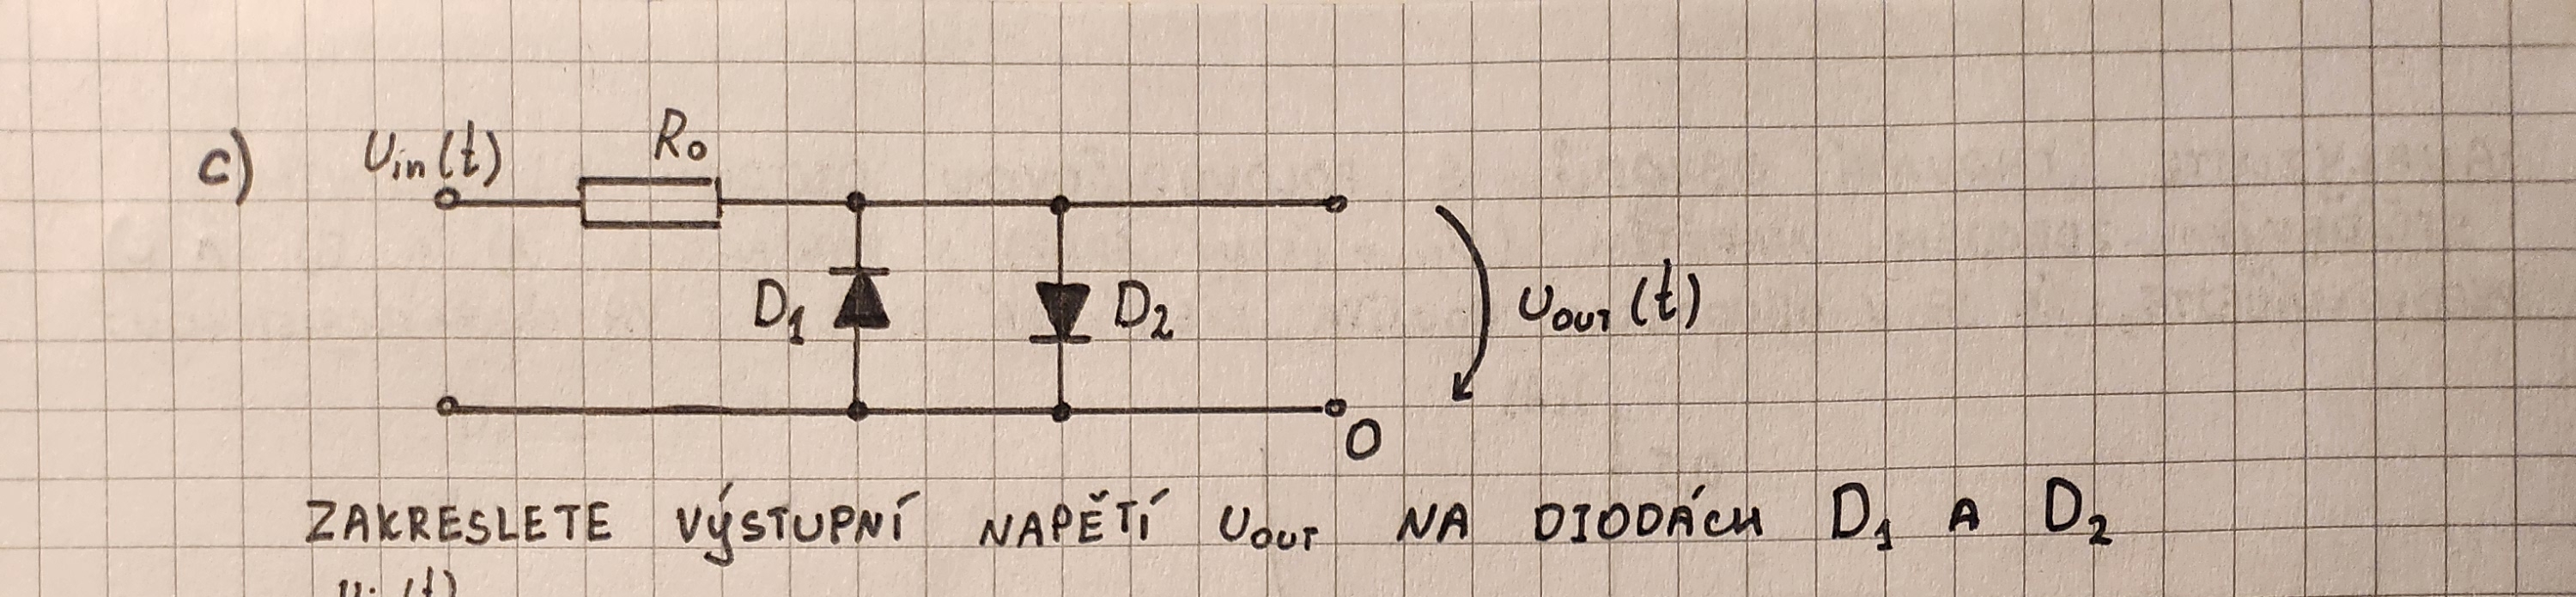 c) Uin(t) R0
D1 D2 UOUT(t)
0
ZAKRESLETE VÝSTUPNÍ NAPĚTÍ UOUT NA DIODÁCH D1 A D2